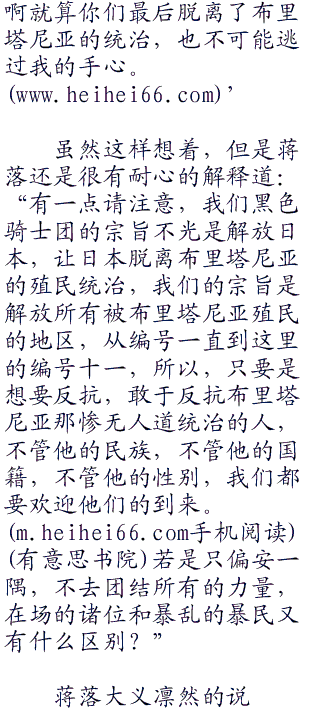 啊就算你们最后脱离了布里
塔尼亚的统治，也不可能逃
过我的手心。
(www.heihei66.com)’
虽然这样想着，但是蒋
落还是很有耐心的解释道：
“有一点请注意，我们黑色
骑士团的宗旨不光是解放日
本，让日本脱离布里塔尼亚
的殖民统治，我们的宗旨是
解放所有被布里塔尼亚殖民
的地区，从编号一直到这里
的编号十一，所以，只要是
想要反抗，敢于反抗布里塔
尼亚那惨无人道统治的人，
不管他的民族，不管他的国
籍，不管他的性别，我们都
要欢迎他们的到来。
(m.heihei66.com手机阅读)
(有意思书院)若是只偏安一
隅，不去团结所有的力量，
在场的诸位和暴乱的暴民又
有什么区别？”
蒋落大义凛然的说